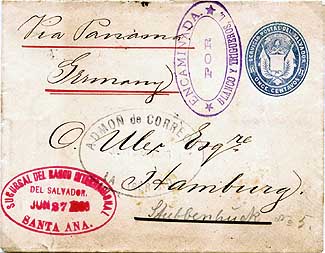 Via Panama
Germany
ENCAMINADA.
POR
BLANCO Y TRIGUEROS
SERVICIO POSTAL DEL SALVADOR
ONCE CENTAVOS
ADMON DE CORREOS
LA
O. Ulex Esqre
Hamburg
Stubbenhuck No 5.
SUCURSAL DEL BANCO INTERNACIONAL
DEL SALVADOR.
JUN 27
SANTA ANA.